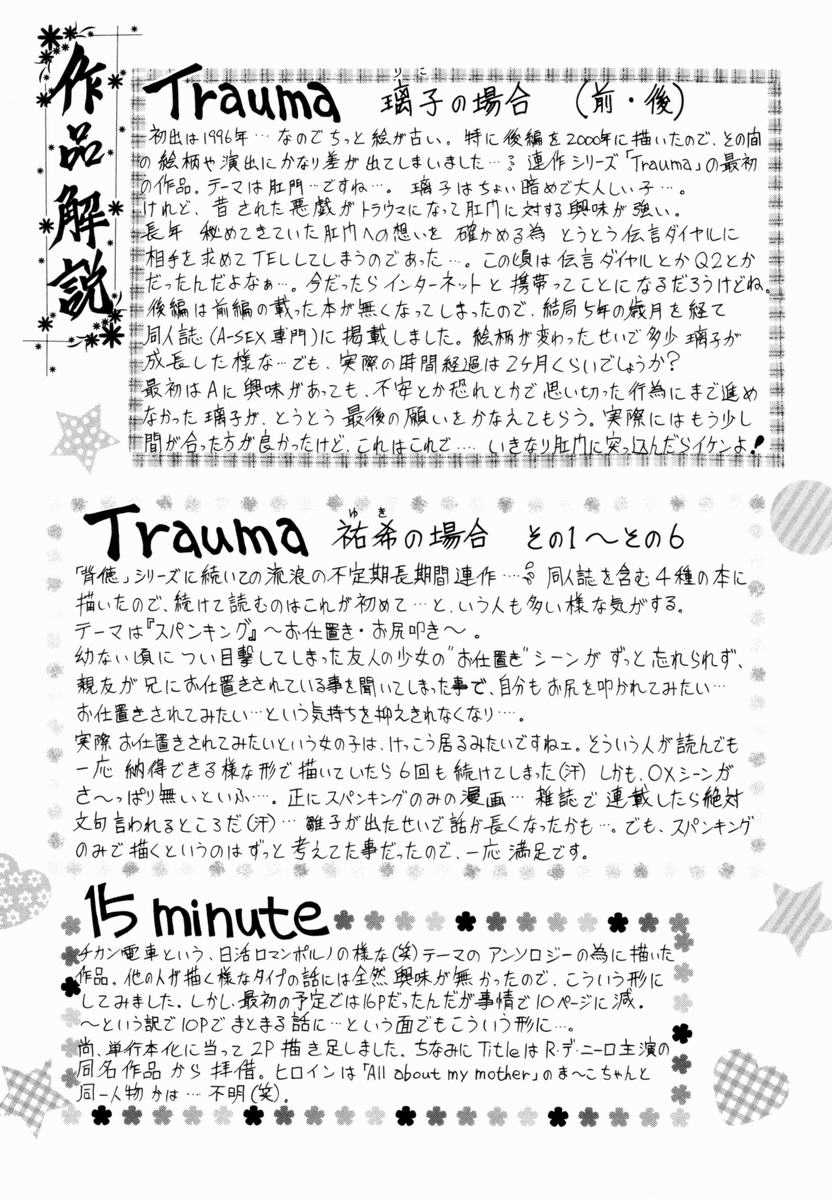 作品解説
Trauma 璃子の場合 (前・後)
りこ
初出は1996年…なのでちっと絵が古い。特に後編を2000年に描いたので、その間
の絵柄や演出にかなり差が出てしまいました…。連作シリーズ「Trauma」の最初
の作品。テーマは肛門…ですね…。璃子はちょい暗めで大人しい子…。
けれど、昔された悪戯がトラウマになって肛門に対する興味が強い。
長年 秘めてきていた肛門への想いを 確かめる為 とうとう伝言ダイヤルに
相手を求めてTELしてしまうのであった…。この頃は伝言ダイヤルとかQ2とか
だったんだよなぁ…。今だったらインターネットと携帯ってことになるだろうけどね。
後編は前編の載った本が無くなってしまったので、結局5年の歳月を経て
同人誌(A-SEX専門)に掲載しました。絵柄が変わったせいで多少璃子が
成長した様な…でも、実際の時間経過は2ヶ月くらいでしょうか?
最初はAに興味があっても、不安とか恐れとかで思い切った行為にまで進め
なかった璃子が、とうとう最後の願いをかなえてもらう。実際にはもう少し
間が合った方が良かったけど、これはこれで…. いきなり肛門に突っ込んだらイケンよ!
Trauma 祐希の場合 その1〜その6
ゆき
「背徳」シリーズに続いての流浪の不定期長期間連作…。同人誌を含む4種の本に
描いたので、続けて読むのはこれが初めて…と、いう人も多い様な気がする。
テーマは『スパンキング』〜お仕置き・お尻叩き〜。
幼ない頃に つい目撃してしまった友人の少女の"お仕置き"シーンが ずっと忘れられず、
親友が兄にお仕置きされている事を聞いてしまった事で、自分もお尻を叩かれてみたい…
お仕置きされてみたい…という気持ちを抑えきれなくなり…。
実際お仕置きされてみたいという女の子は、けっこう居るみたいですねェ。そういう人が読んでも
一応 納得できる様な形で描いていたら6回も続けてしまった(汗) しかも、OXシーンが
さ〜っぱり無いといふ…。正にスパンキングのみの漫画… 雑誌で連載したら絶対
文句言われるところだ(汗)… 雛子が出たせいで話が長くなったかも…。でも、スパンキング
のみで描くというのはずっと考えてた事だったので、一応満足です。
15 minute
チカン電車という、日活ロマンポルノの様な(笑)テーマのアンソロジーの為に描いた
作品。他の人が描く様なタイプの話には全然興味が無かったので、こういう形に
してみました。しかし、最初の予定では16Pだったんだが事情で10ページに減。
〜という訳で10Pでまとまる話に…という面でもこういう形に…。
尚、単行本化に当って2P描き足しました。ちなみにTitleはR・デ・ニーロ主演の
同名作品から拝借。ヒロインは「All about my mother」のま〜こちゃんと
同一人物かは… 不明(笑)。